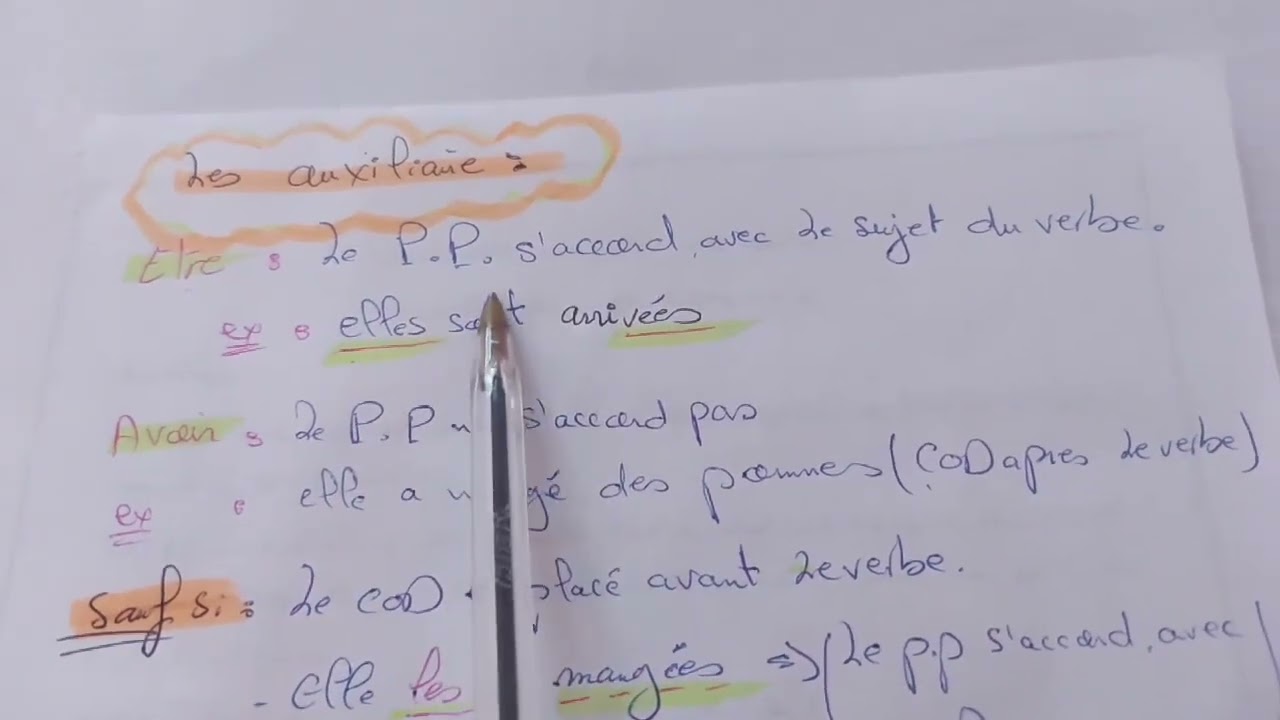 Les auxiliaire :
Etre : Le P.P. s'accord avec le sujet du verbe.
ex : elles sont arrivées
Avoir : Le P.P s'accord pas
ex : elle a des pommes (COD apres le verbe)
Sauf si : Le COD placé avant le verbe.
- Elle les mangées => (Le p.p s'accord avec